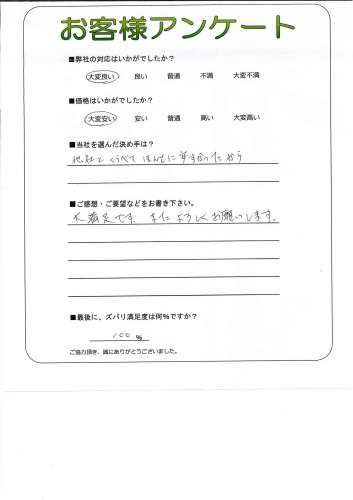 お客様アンケート
■弊社の対応はいかがでしたか?
大変良い 良い 普通 不満 大変不満
■価格はいかがでしたか?
大変安い 安い 普通 高い 大変高い
■当社を選んだ決め手は?
他社とくらべてほんとに安かったから
■ご感想・ご要望などをお書き下さい。
大満足です。またよろしくお願いします。
■最後に、ズバリ満足度は何%ですか?
100 %
ご協力頂き、誠にありがとうございました。